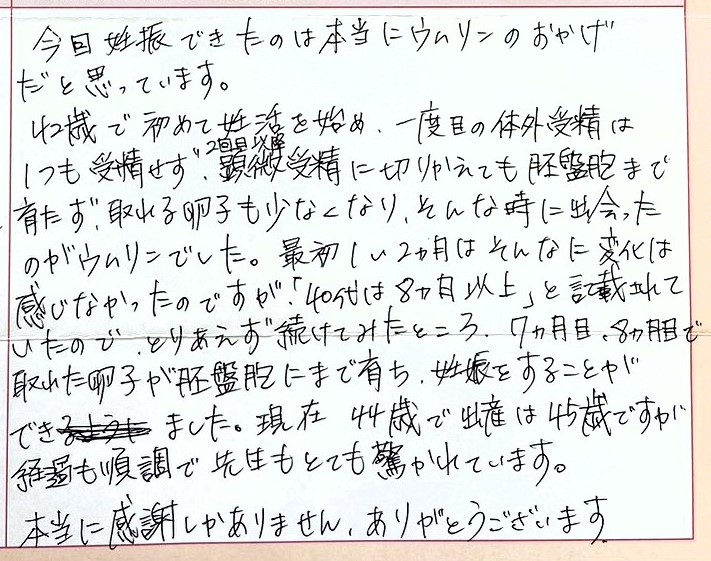 今回妊娠できたのは本当にウムリンのおかげ
だと思っています。
42歳で初めて妊活を始め、一度目の体外受精は
1つも受精せず、2回目以降顕微受精に切りかえても胚盤胞まで
育たず、取れる卵子も少なくなり、そんな時に出会った
のがウムリンでした。最初1、2ヵ月はそんなに変化は
感じなかったのですが、「40代は8ヵ月以上」と記載されて
いたので、とりあえず続けてみたところ、7ヵ月目、8ヵ月目で
取れた卵子が胚盤胞にまで育ち、妊娠をすることが
できました。現在 44歳で出産は45歳ですが
経過も順調で先生もとても驚かれています。
本当に感謝しかありません、ありがとうございます